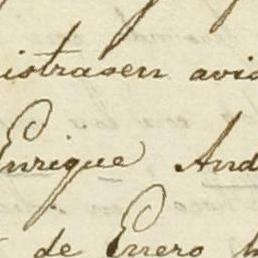 istrasen avis
Enrique And
de Enero h